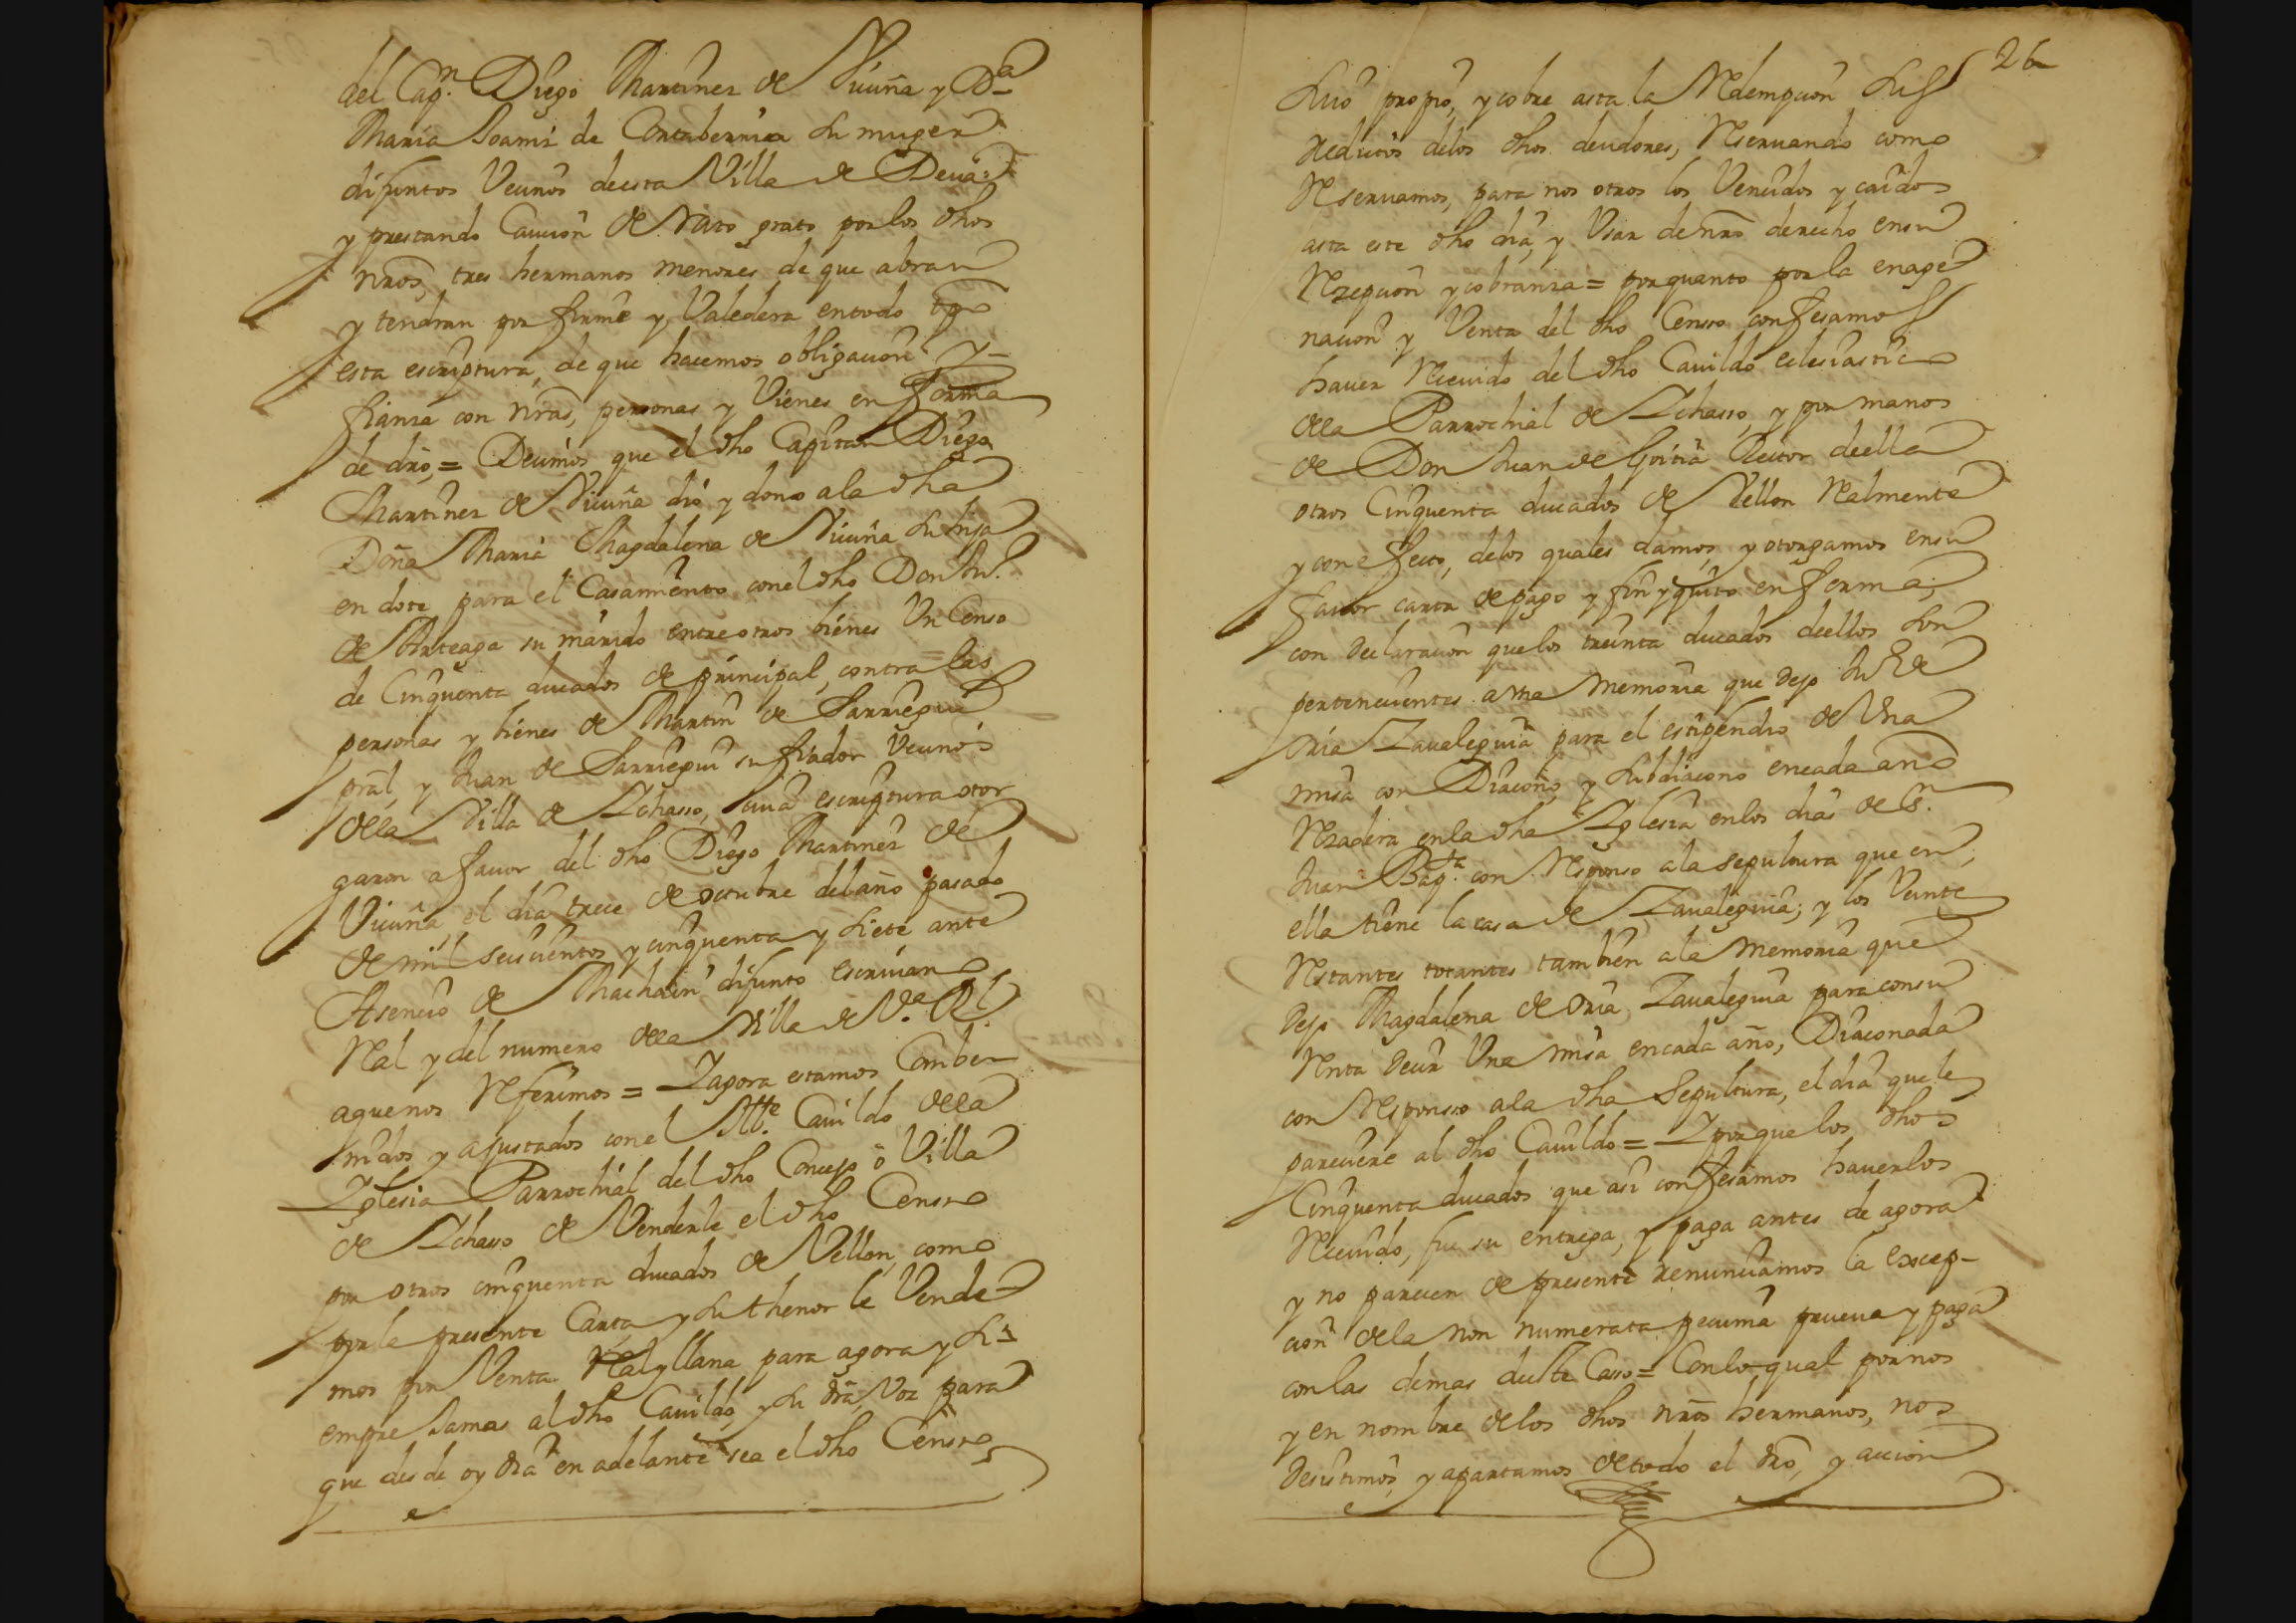 del Cap.n Diego Martinez de Vicuña y D.a
Maria Joamiz de Contabernia su muger
difuntos Vecinos de esta Villa de Deua:
y prestando Caucion de rato grato por los dhos
nros, tres hermanos menores de que abran
y tendran por firme y Valedera en todo tpo
esta escriptura, de que hacemos obligacion y
fianza con nras, personas y Vienes en forma
de dro, = Decimos que el dho Capitan Diego
Martinez de Vicuña dió y dono a la dha
Doña Maria Magdalena de Vicuña su hija
en dote para el Casamiento con el dho Don
de Arteaga su marido entre otros bienes Un Censo
de Cinquenta ducados de principal, contra las
personas y bienes de Martin de Sarriegui
pral, y Juan de Sarriegui su fiador Vecinos
de la Villa de Ichasso, cuia escriptura otor
garon a fauor del dho Diego Martinez de
Vicuña, el dia trece de octubre del año pasado
de mil seiscientos y cinquenta y siete ante
Asencio de Machain difunto escriuano
Real y del numero de la Villa de V.a R.l
aque nos Referimos = Y agora estamos Combe
nidos y ajustados con el Ille. Cauildo de la
Yglesia Parrochial del dho Concejo ó Villa
de Ichaso de Venderle el dho Censso
por otros cinquenta ducados de Vellon, como
por la presente Carta y su thenor le Vende
mos por Venta Real y llana para agora y si
empre Jamas al dho Cauildo, y su dra, Voz para
que des de oy dia en adelante sea el dho Censso
26
suio propio, y cobre asta la Redempcion sus
reditos de los dhos deudores, Reseruando como
Reseruamos, para nos otros los Vencidos y caidos
asta este dho dia, y Vsar de nro derecho en su
Rezepcion y cobranza = por quanto por la enage
nacion y Venta del dho Censso confesamos
hauer Receuido del dho Cauildo eclesiastico
de la Parrochial de Ichasso, y por manos
de Don Juan de Goitia Rector de ella
otros Cinquenta ducados de Vellon Realmente
y con efecto, de los quales damos, y otorgamos en su
fauor carta de pago y fin y quito en forma;
con declaracion que los treinta ducados de ellos son
pertenecientes a vna Memoria que dejo Ju.o de
oria Zaualeguia para el estipendio de Vna
misa con Diacono, y Subdiacono en cada año
Rezadera en la dha Yglesia en los dias de S.n
Juan Bap.ta con Responso a la sepultura que en,
ella tiene la casa de Zaualeguia; y los Veinte
Restantes tocantes tambien a la Memoria que
dejo Magdalena de oria, Zaualeguia para con su
Renta decir Vna misa en cada año, Diaconada
con Responsso a la dha Sepultura, el dia que le
pareciere al dho Cauildo = Y porque los, dhos
Cinquenta ducados que asi confesamos hauerlos
Receuido, fue su entrega, y paga antes de agora
y no parecen de presente renunciamos la excep-
cion de la non numerata pecunia prueua y paga
con las demas de este Caso = Con lo qual por nos
y en nombre de los dhos nros hermanos, nos
desistimos, y apartamos de todo el dro, y accion